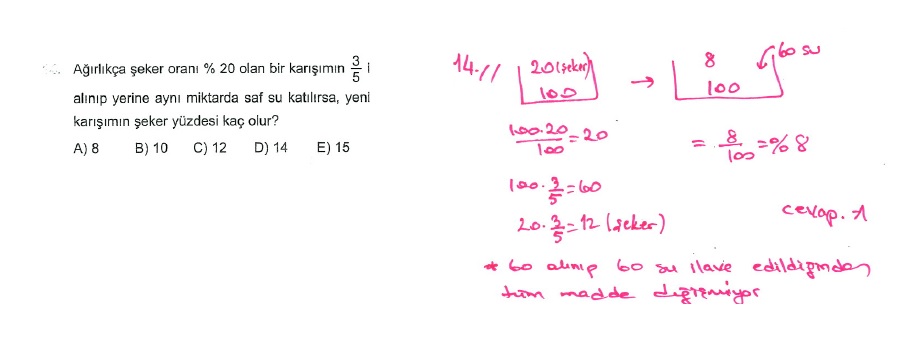 Ağırlıkça şeker oranı % 20 olan bir karışımın 3/5 i
alınıp yerine aynı miktarda saf su katılırsa, yeni
karışımın şeker yüzdesi kaç olur?
A) 8 B) 10 C) 12 D) 14 E) 15
14-//
20(şeker)
100
→
8
100
60 su
100.20/100=20
= 8/100 =%8
100.3/5=60
20.3/5=12 (şeker)
cevap. A
* 60 alınıp 60 su ilave edildiğinden
tüm madde değişmiyor